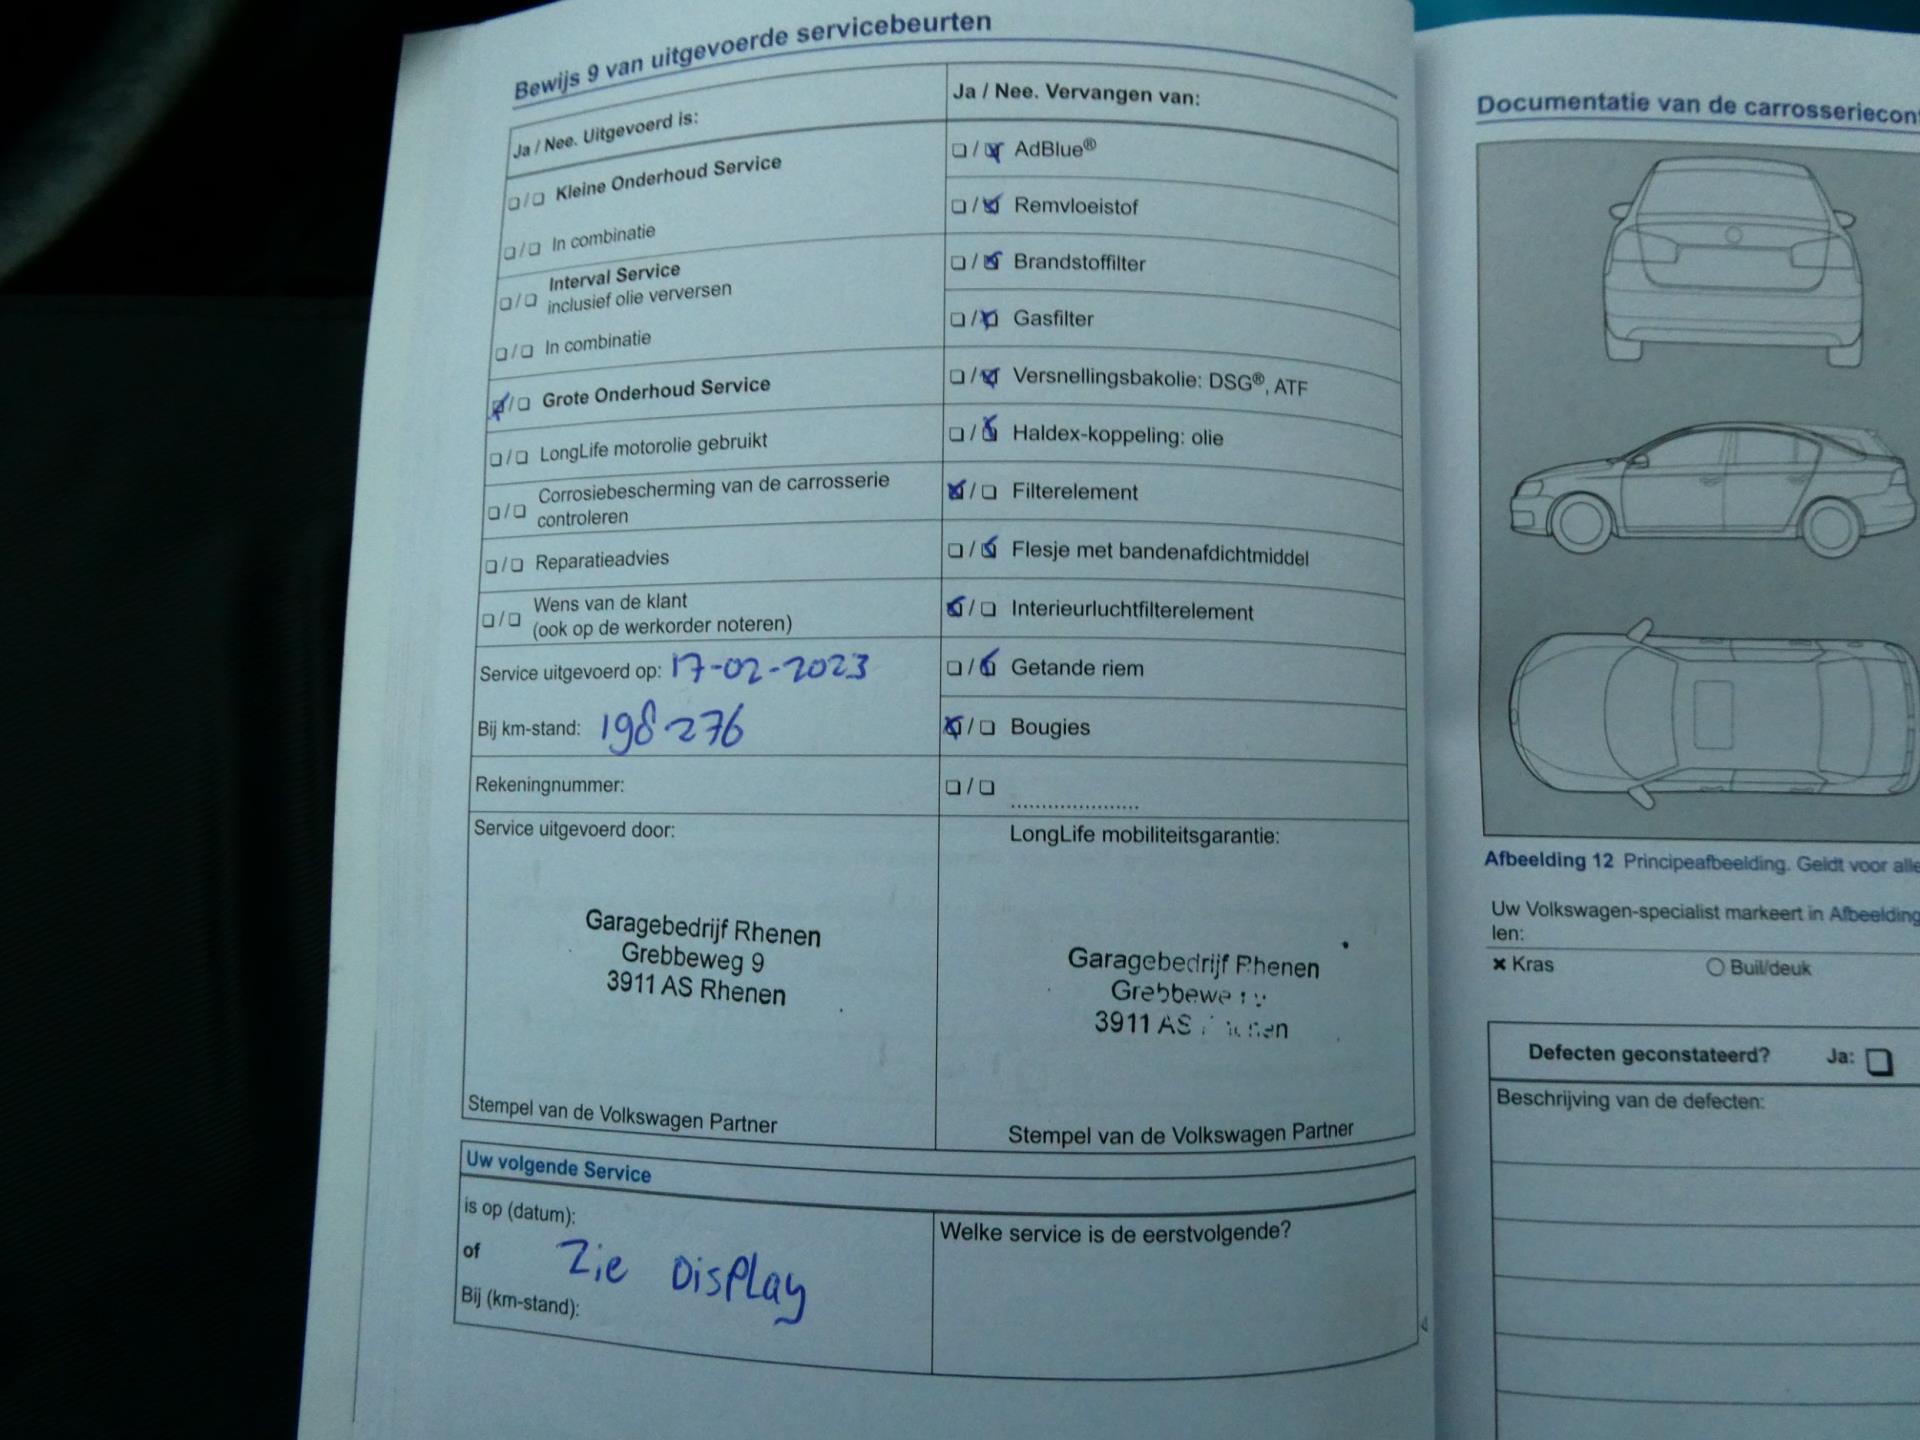 Bewijs 9 van uitgevoerde servicebeurten
Ja / Nee. Uitgevoerd is:
❏ / ❏ Kleine Onderhoud Service
❏ / ❏ In combinatie
❏ / ❏ Interval Service
inclusief olie verversen
❏ / ❏ In combinatie
☒ / ❏ Grote Onderhoud Service
❏ / ❏ LongLife motorolie gebruikt
❏ / ❏ Corrosiebescherming van de carrosserie
controleren
❏ / ❏ Reparatieadvies
❏ / ❏ Wens van de klant
(ook op de werkorder noteren)
Service uitgevoerd op: 17-02-2023
Bij km-stand: 198276
Rekeningnummer:
Service uitgevoerd door:
Garagebedrijf Rhenen
Grebbeweg 9
3911 AS Rhenen
Stempel van de Volkswagen Partner
Ja / Nee. Vervangen van:
❏ / ☒ AdBlue®
❏ / ☒ Remvloeistof
❏ / ☒ Brandstoffilter
❏ / ☒ Gasfilter
❏ / ☒ Versnellingsbakolie: DSG®, ATF
❏ / ☒ Haldex-koppeling: olie
☒ / ❏ Filterelement
❏ / ☒ Flesje met bandenafdichtmiddel
☒ / ❏ Interieurluchtfilterelement
❏ / ☒ Getande riem
☒ / ❏ Bougies
❏ / ❏ .....................
LongLife mobiliteitsgarantie:
Garagebedrijf Rhenen
3911 AS
Stempel van de Volkswagen Partner
Uw volgende Service
is op (datum):
of Zie Display
Bij (km-stand):
Welke service is de eerstvolgende?
Documentatie van de
Afbeelding 12 Principeafbeelding. Geldt voor alle
Uw Volkswagen-specialist markeert in Afbeelding
len:
✖ Kras ○ Buil/deuk
Defecten geconstateerd? Ja: ❏
Beschrijving van de defecten: